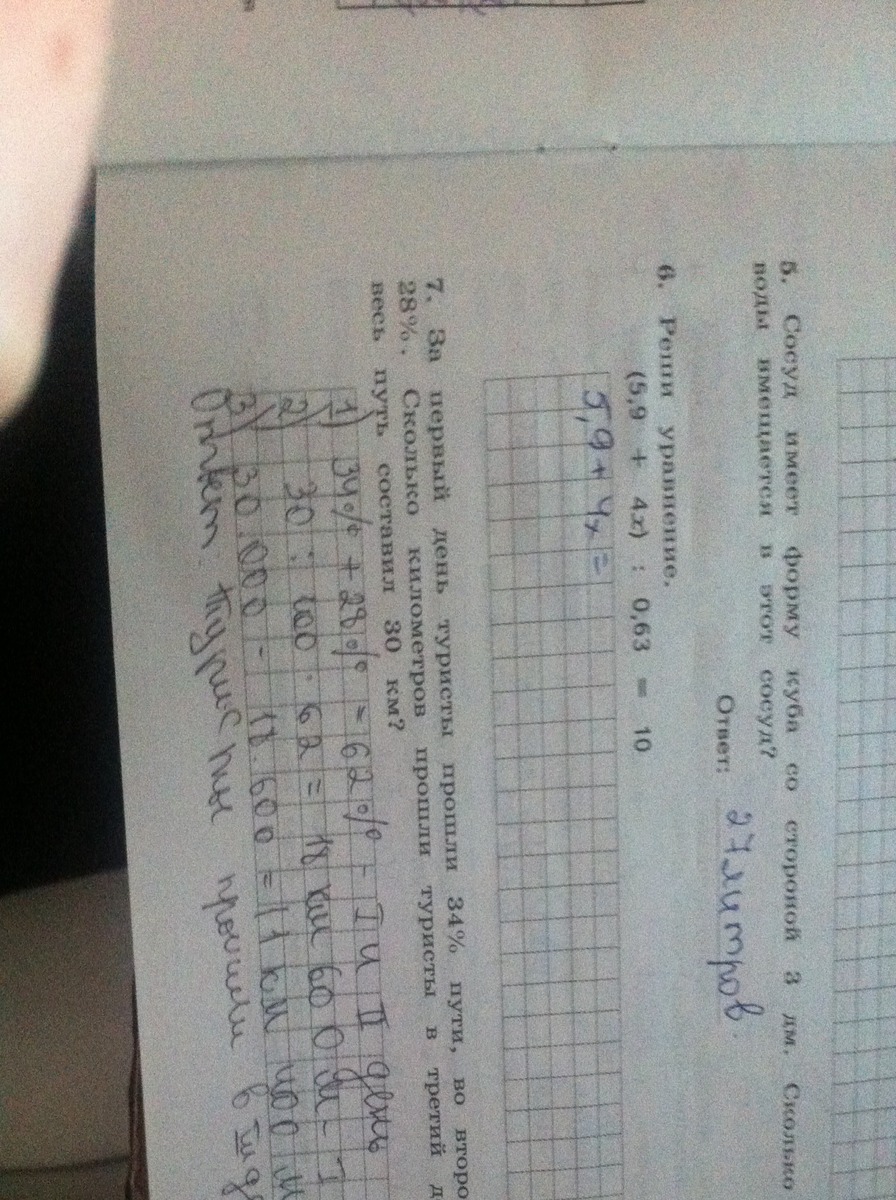 5. Сосуд имеет форму куба со стороной 3 дм. Сколько
воды вмещается в этот сосуд?
Ответ: 27 литров
6. Реши уравнение.
(5,9 + 4x) : 0,63 = 10
5,9 + 4x =
7. За первый день туристы прошли 34% пути, во второ
28%. Сколько километров прошли туристы в третий д
весь путь составил 30 км?
1) 34% + 28% = 62% - I и II день
2) 30 : 100 · 62 = 18 км 600 м - I
3) 30.000 - 18.600 = 11 км 400 м
Ответ: туристы прошли в III д